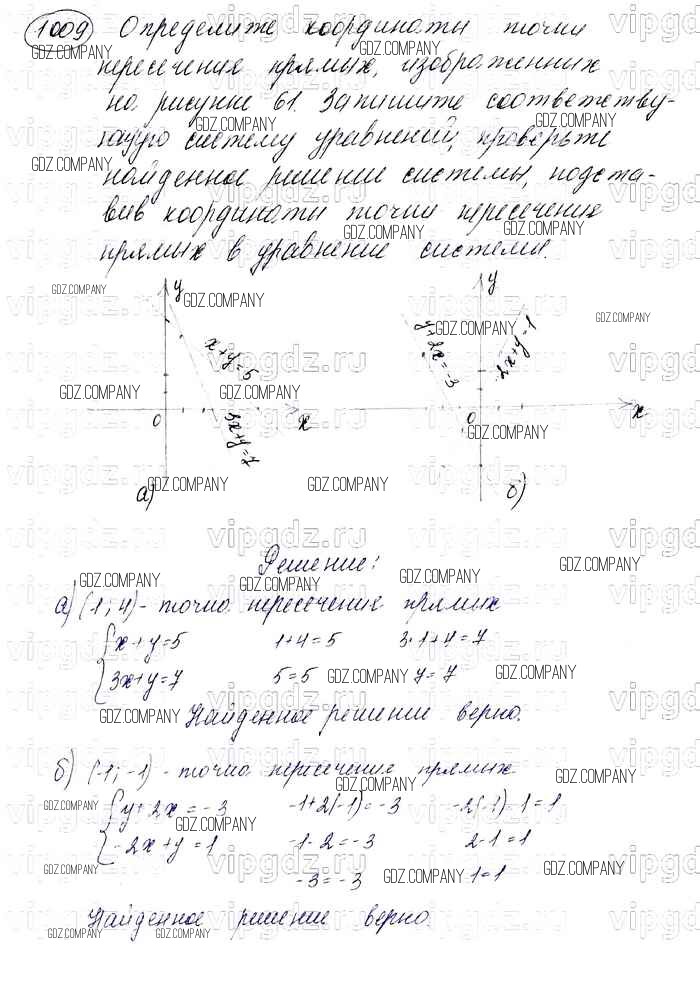 1009 Определите координаты точки
пересечения прямых, изображенных
на рисунке 61. Запишите соответству-
ющую систему уравнений, проверьте
найденное решение системы, подста-
вив координаты точки пересечения
прямых в уравнение системы.
y
x+y=5
3x+y=7
0
x
а)
y
y+2x=-3
-2x+y=1
0
x
б)
Решение:
а) (1; 4) - точка пересечения прямых
x+y=5 1+4=5 3·1+4=7
3x+y=7 5=5 7=7
Найденное решение верно.
б) (-1; -1) - точка пересечения прямых
y+2x=-3 -1+2(-1)=-3 -2(-1)-1=1
-2x+y=1 -1-2=-3 2-1=1
-3=-3 1=1
Найденное решение верно.
GDZ.COMPANY
vipgdz.ru